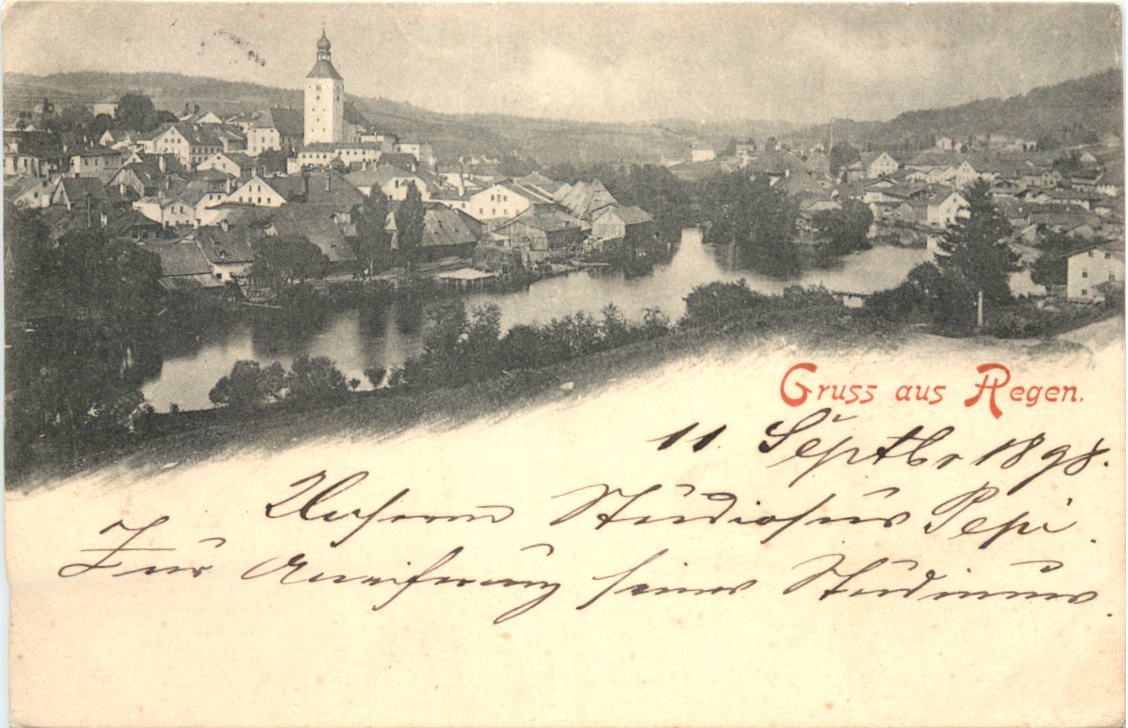 Gruss aus Regen.
11. Septbr 1898.
Unserm Studiosus Pepi.
Zur Aneiferung seines Studiums.